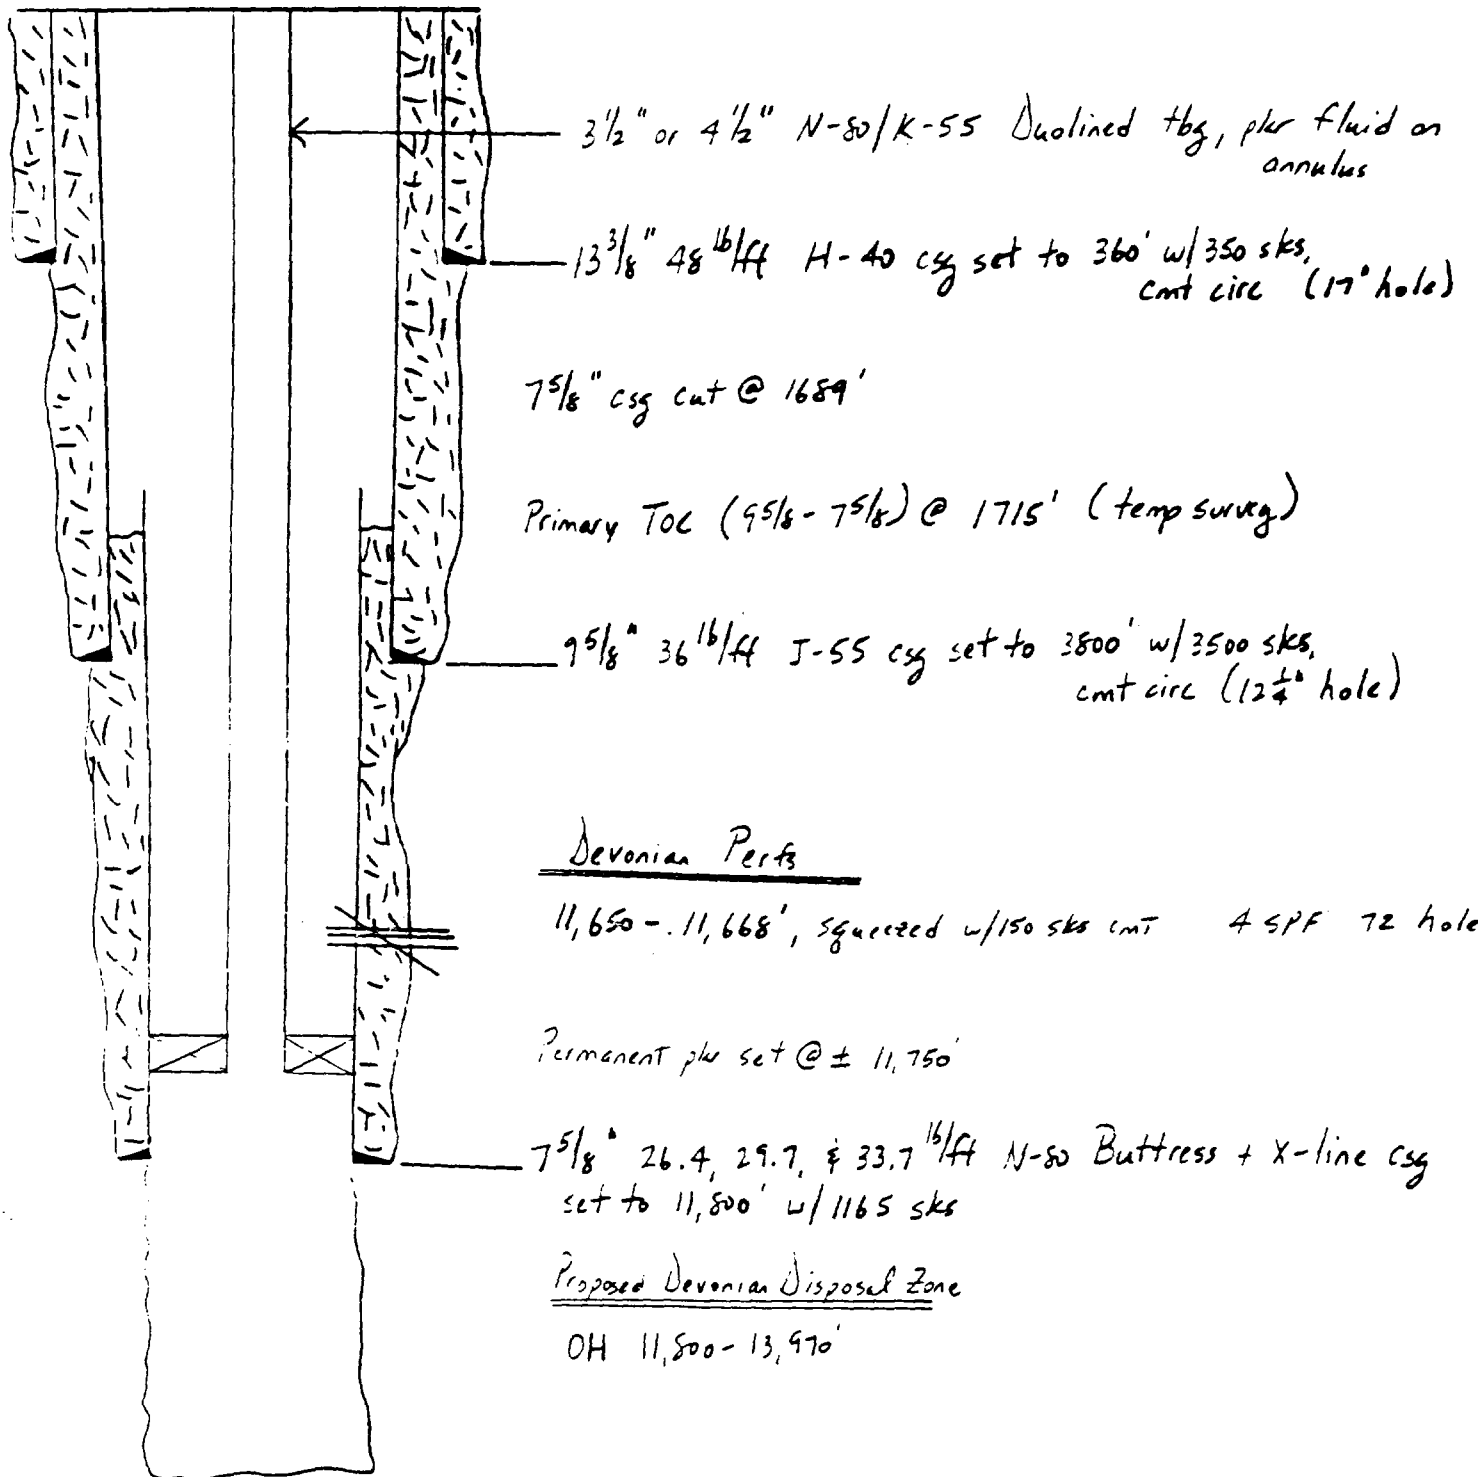 3½" or 4½" N-80/K-55 Duolined tbg, pkr fluid on
annulus
13 3/8" 48 lb/ft H-40 csg set to 360' w/350 sks,
cmt circ (17" hole)
7 5/8" csg cut @ 1689'
Primary TOC (9 5/8 - 7 5/8) @ 1715' (temp survey)
9 5/8" 36 lb/ft J-55 csg set to 3800' w/3500 sks,
cmt circ (12 ¼" hole)
Devonian Perfs
11,650 - 11,668', squeezed w/150 sks cmt 4 SPF 72 hole
Permanent pkr set @ ± 11,750'
7 5/8" 26.4, 29.7, & 33.7 lb/ft N-80 Buttress + X-line csg
set to 11,800' w/ 1165 sks
Proposed Devonian Disposal Zone
OH 11,800 - 13,970'